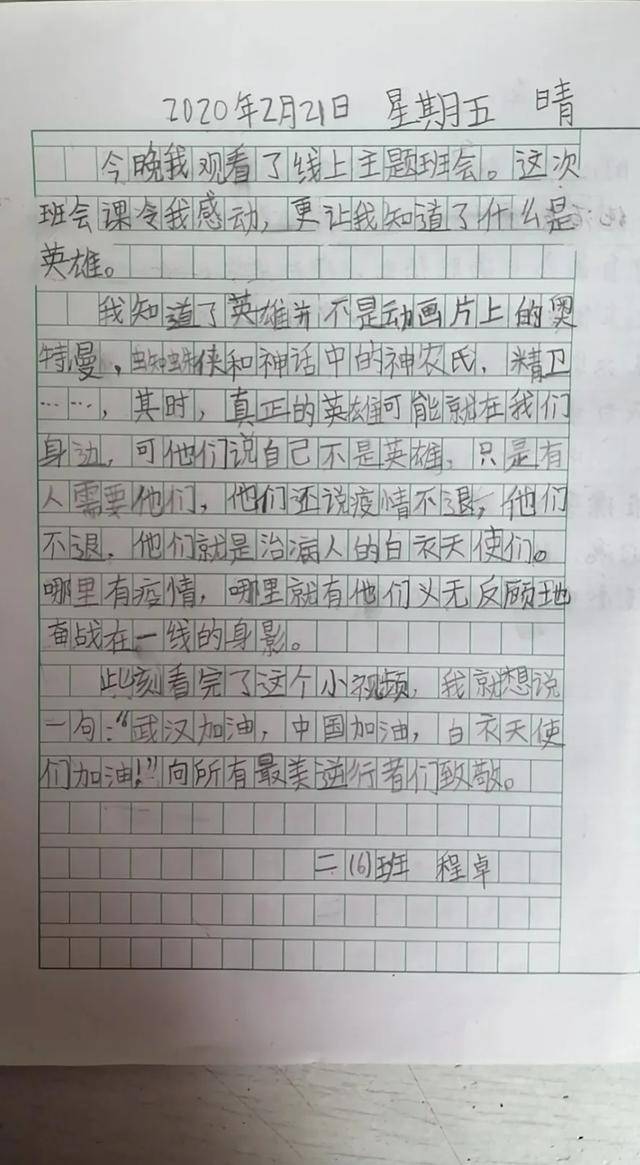 2020年2月21日 星期五 晴
今晚我观看了线上主题班会。这次
班会课令我感动，更让我知道了什么是
英雄。
我知道了英雄并不是动画片上的奥
特曼，蜘蛛侠和神话中的神农氏，精卫
……，其时，真正的英雄可能就在我们
身边，可他们说自己不是英雄，只是有
人需要他们，他们还说疫情不退，他们
不退，他们就是治病人的白衣天使们。
哪里有疫情，哪里就有他们义无反顾地
奋战在一线的身影。
此刻看完了这个小视频，我就想说
一句：“武汉加油，中国加油，白衣天使
们加油！”向所有最美逆行者们致敬。
二（6）班 程卓